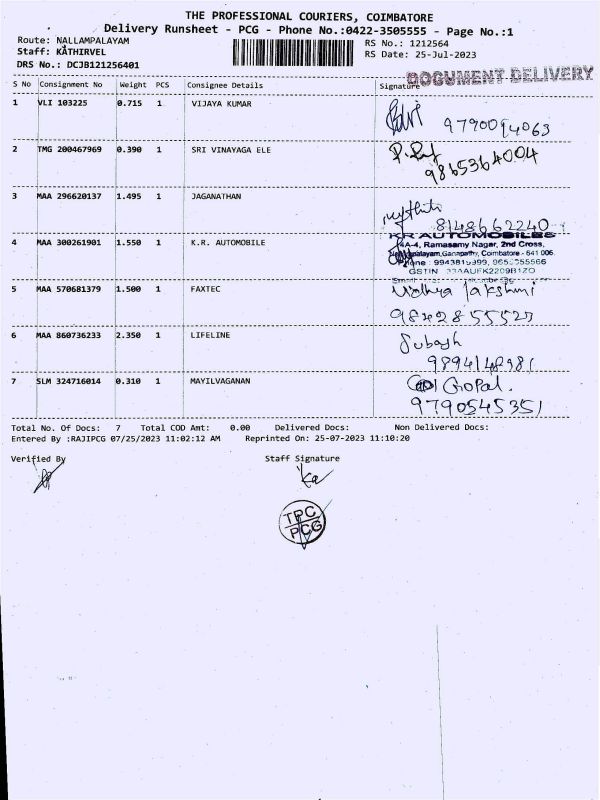 THE PROFESSIONAL COURIERS, COIMBATORE
Delivery Runsheet - PCG - Phone No.:0422-3505555 - Page No.:1
Route: NALLAMPALAYAM
RS No.: 1212564
Staff: KATHIRVEL
RS Date: 25-Jul-2023
DRS No.: DCJB121256401
DOCUMENT DELIVERY
S No Consignment No Weight PCS Consignee Details Signature
1 VLI 103225 0.715 1 VIJAYA KUMAR
9790094063
2 TMG 200467969 0.390 1 SRI VINAYAGA ELE
9865364004
3 MAA 296620137 1.495 1 JAGANATHAN
8148662240
KR AUTOMOBILES
4 MAA 300261901 1.550 1 K.R. AUTOMOBILE
4A-4, Ramasamy Nagar, 2nd Cross,
Ganapathy, Coimbatore - 641 006.
5 MAA 570681379 1.500 1 FAXTEC
Vidhya lakshmi
9842855523
6 MAA 860736233 2.350 1 LIFELINE
Subash
9894148981
7 SLM 324716014 0.310 1 MAYILVAGANAN
Gopal.
9790545351
Total No. Of Docs: 7 Total COD Amt: 0.00 Delivered Docs: Non Delivered Docs:
Entered By :RAJIPCG 07/25/2023 11:02:12 AM Reprinted On: 25-07-2023 11:10:20
Verified By Staff Signature
Ka
TPC
PCG